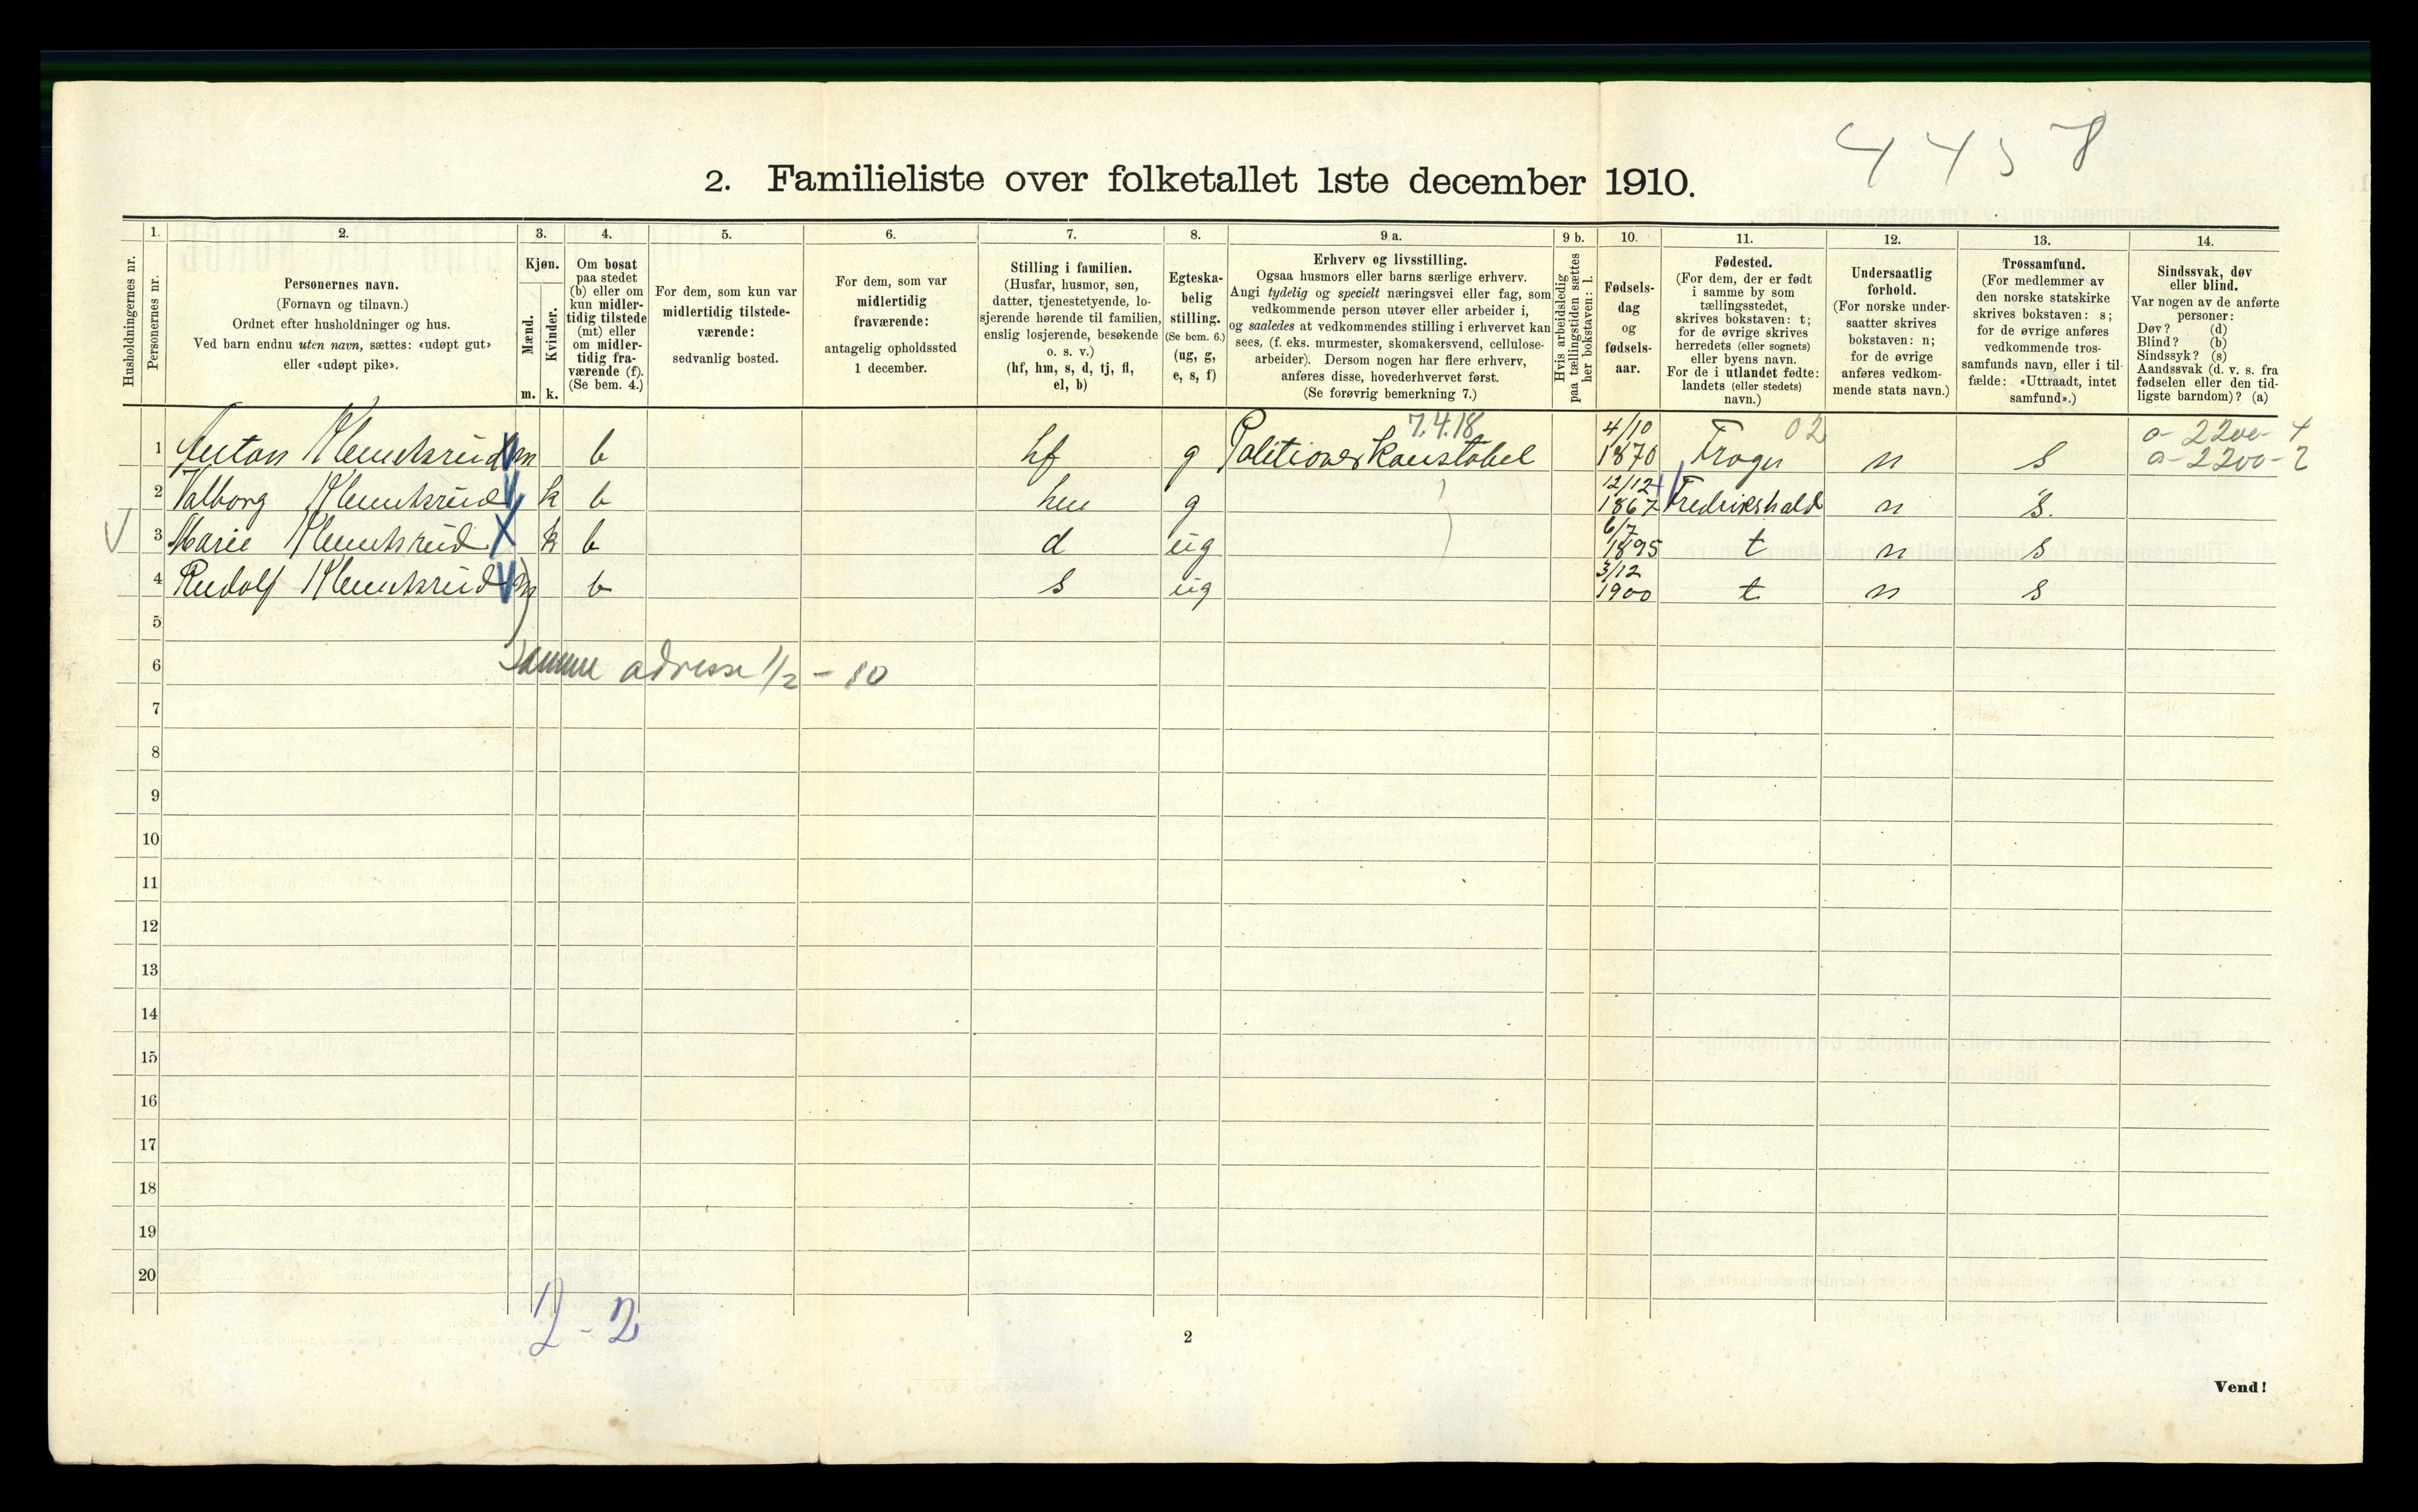 4457
2. Familieliste over folketallet 1ste december 1910.
1. 2. 3. 4. 5. 6. 7. 8. 9 a. 9 b. 10. 11. 12. 13. 14.
Husholdningernes nr.
Personernes nr.
Personernes navn.
(Fornavn og tilnavn.)
Ordnet efter husholdninger og hus.
Ved barn endnu uten navn, sættes: «udøpt gut»
eller «udøpt pike».
Kjøn.
Mænd.
Kvinder.
m. k.
Om bosat
paa stedet
(b) eller om
kun midler-
tidig tilstede
(mt) eller
om midler-
tidig fra-
værende (f).
(Se bem. 4.)
For dem, som kun var
midlertidig tilstede-
værende:
sedvanlig bosted.
For dem, som var
midlertidig
fraværende:
antagelig opholdssted
1 december.
Stilling i familien.
(Husfar, husmor, søn,
datter, tjenestetyende, lo-
sjerende hørende til familien,
enslig losjerende, besøkende
o. s. v.)
(hf, hm, s, d, tj, fl,
el, b)
Egteska-
belig
stilling.
(Se bem. 6.)
(ug, g,
e, s, f)
Erhverv og livsstilling.
Ogsaa husmors eller barns særlige erhverv.
Angi tydelig og specielt næringsvei eller fag, som
vedkommende person utøver eller arbeider i,
og saaledes at vedkommendes stilling i erhvervet kan
sees, (f. eks. murmester, skomakersvend, cellulose-
arbeider). Dersom nogen har flere erhverv,
anføres disse, hovederhvervet først.
(Se forøvrig bemerkning 7.)
Hvis arbeidsledig
paa tællingstiden sættes
her bokstaven: l.
Fødsels-
dag
og
fødsels-
aar.
Fødested.
(For dem, der er født
i samme by som
tællingsstedet,
skrives bokstaven: t;
for de øvrige skrives
herredets (eller sognets)
eller byens navn.
For de i utlandet fødte:
landets (eller stedets)
navn.)
Undersaatlig
forhold.
(For norske under-
saatter skrives
bokstaven: n;
for de øvrige
anføres vedkom-
mende stats navn.)
Trossamfund.
(For medlemmer av
den norske statskirke
skrives bokstaven: s;
for de øvrige anføres
vedkommende tros-
samfunds navn, eller i til-
fælde: «Uttraadt, intet
samfund».)
Sindssvak, døv
eller blind.
Var nogen av de anførte
personer:
Døv? (d)
Blind? (b)
Sindssyk? (s)
Aandssvak (d. v. s. fra
fødselen eller den tid-
ligste barndom)? (a)
7.4.18 02 2200-4
1 Anton m b hf g 4/10 1870 n s 2200-2
2 Valborg k b hm g 12/12 1867 Fredrikshald n s.
3 Marie k b d ug 6/7 1895 t n s
4 Rudolf m b s ug 3/12 1900 t n s
5
6 Samme adresse 1/2 - 10
7
8
9
10
11
12
13
14
15
16
17
18
19
20
2 - 2
2
Vend!